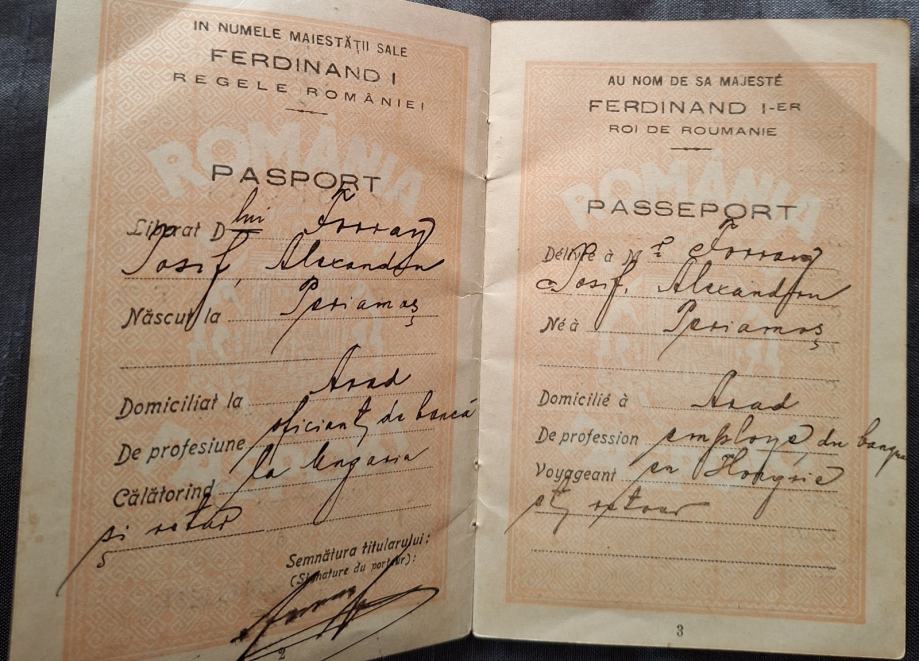 IN NUMELE MAIESTĂȚII SALE
FERDINAND I
REGELE ROMÂNIEI
ROMÂNIA
PASPORT
Liberat D lui
Iosif, Alexandru
Născut la Periamoș
Domiciliat la Arad
De profesiune oficiant de bancă
Călătorind la Ungaria
și retur
Semnătura titularului:
(Signature du porteur):
2
AU NOM DE SA MAJESTÉ
FERDINAND I-ER
ROI DE ROUMANIE
ROMÂNIA
PASSEPORT
Délivré à M r
Iosif, Alexandru
Né à Periamoș
Domicilié à Arad
De profession employé de banque
Voyageant en Hongrie
et retour
3